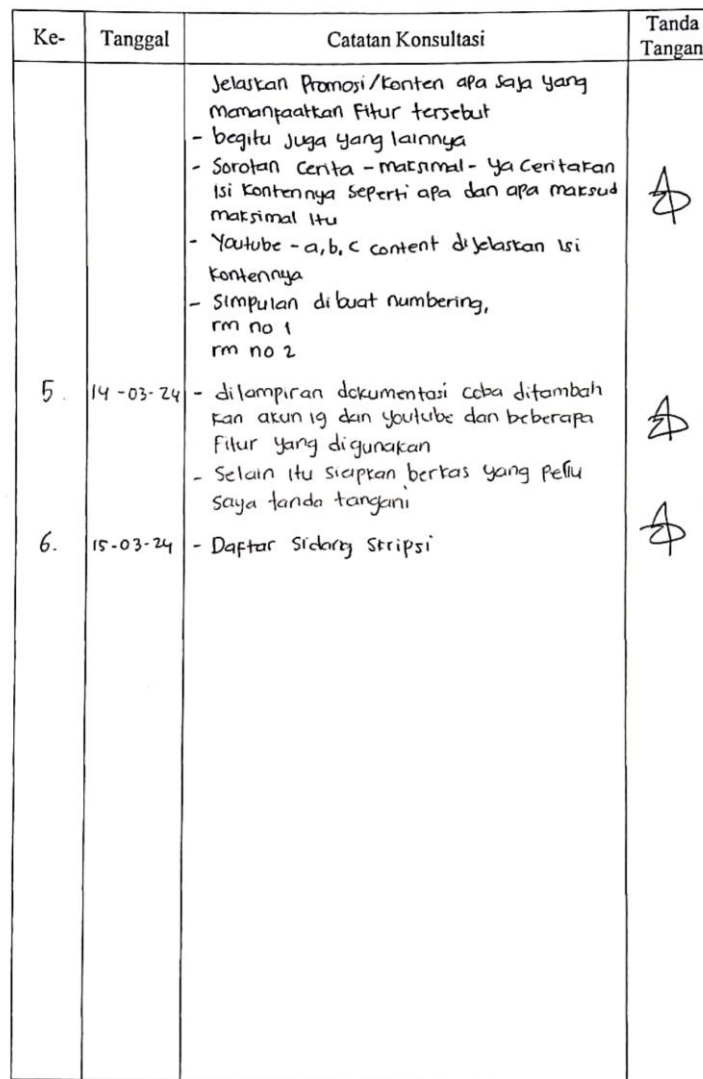 Ke- Tanggal Catatan Konsultasi Tanda Tangan
Jelaskan Promosi/konten apa saja yang
memanfaatkan Fitur tersebut
- begitu juga yang lainnya
- Sorotan Cerita - maksimal - ya Ceritakan
isi kontennya seperti apa dan apa maksud
maksimal itu
- Youtube - a, b, c content dijelaskan isi
kontennya
- Simpulan dibuat numbering,
rm no 1
rm no 2
5. 14-03-24 - dilampiran dokumentasi coba ditambah
kan akun ig dan youtube dan beberapa
Fitur yang digunakan
- Selain itu siapkan berkas yang perlu
saya tanda tangani
6. 15-03-24 - Daftar Sidang Skripsi